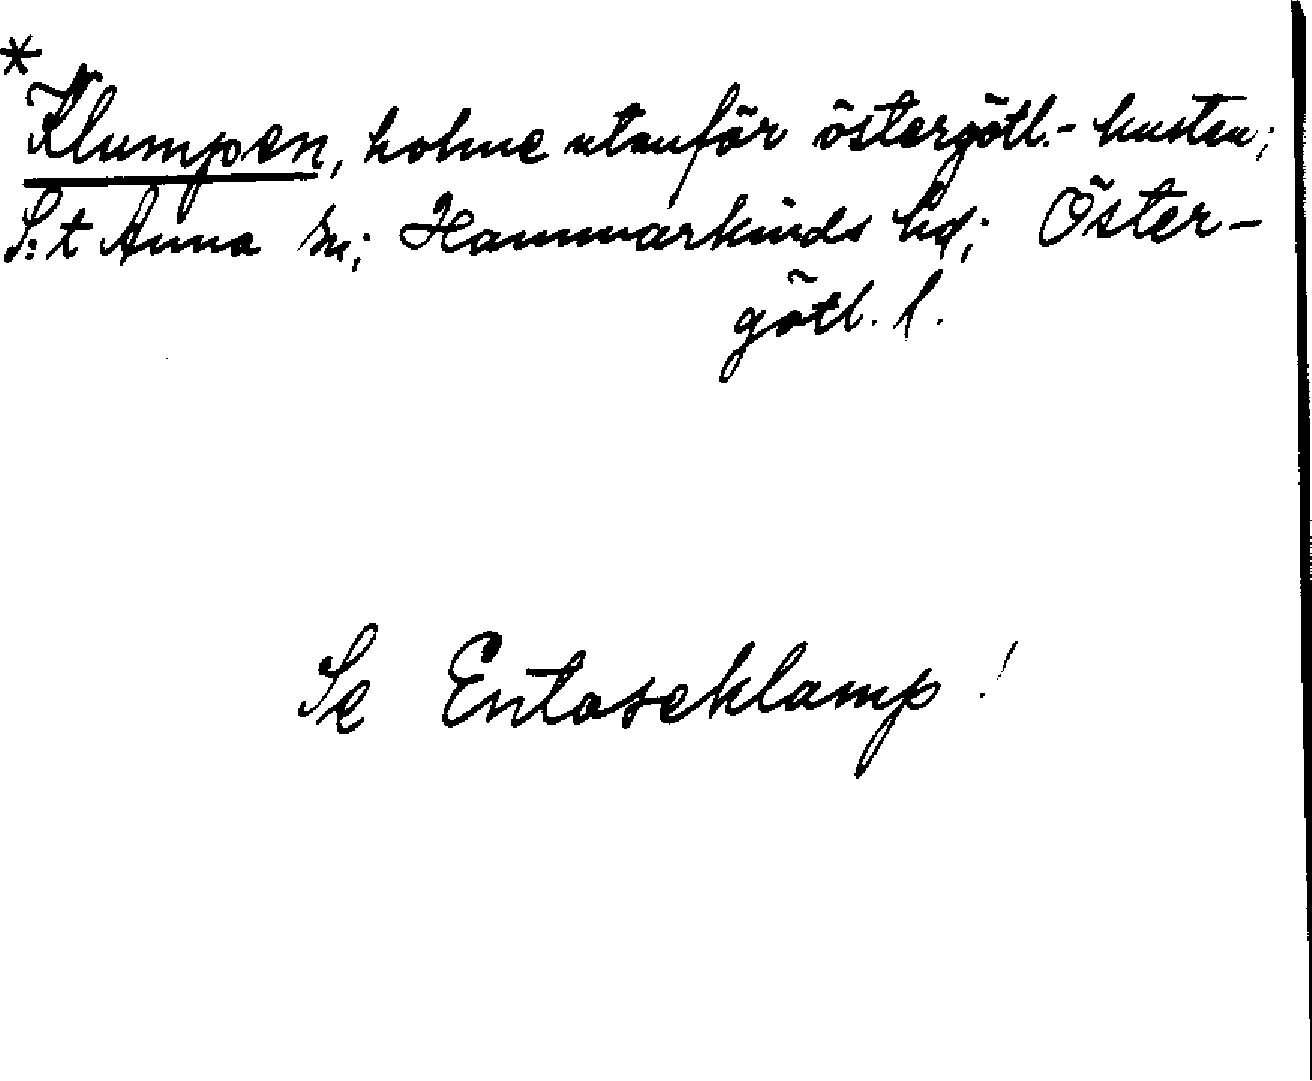 *
Klumpen, holme utanför östergötl.- kusten;
S:t Anna sn; Hammarkinds hd; Öster-
götl. l.
Se Entaseklamp!